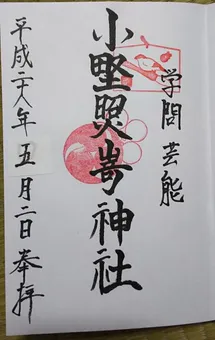 学問芸能
小野照崎神社
平成二十八年五月二日奉拝